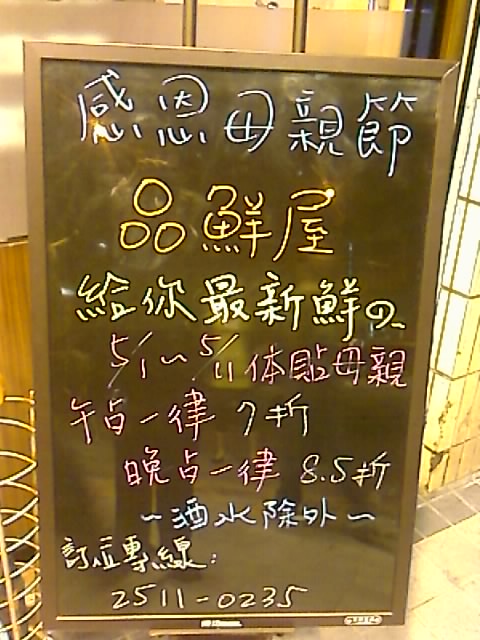 感恩母親節
品鮮屋
給你最新鮮の
5/1~5/11体貼母親
午占一律 7折
晚占一律 8.5折
~酒水除外~
訂位專線:
2511-0235